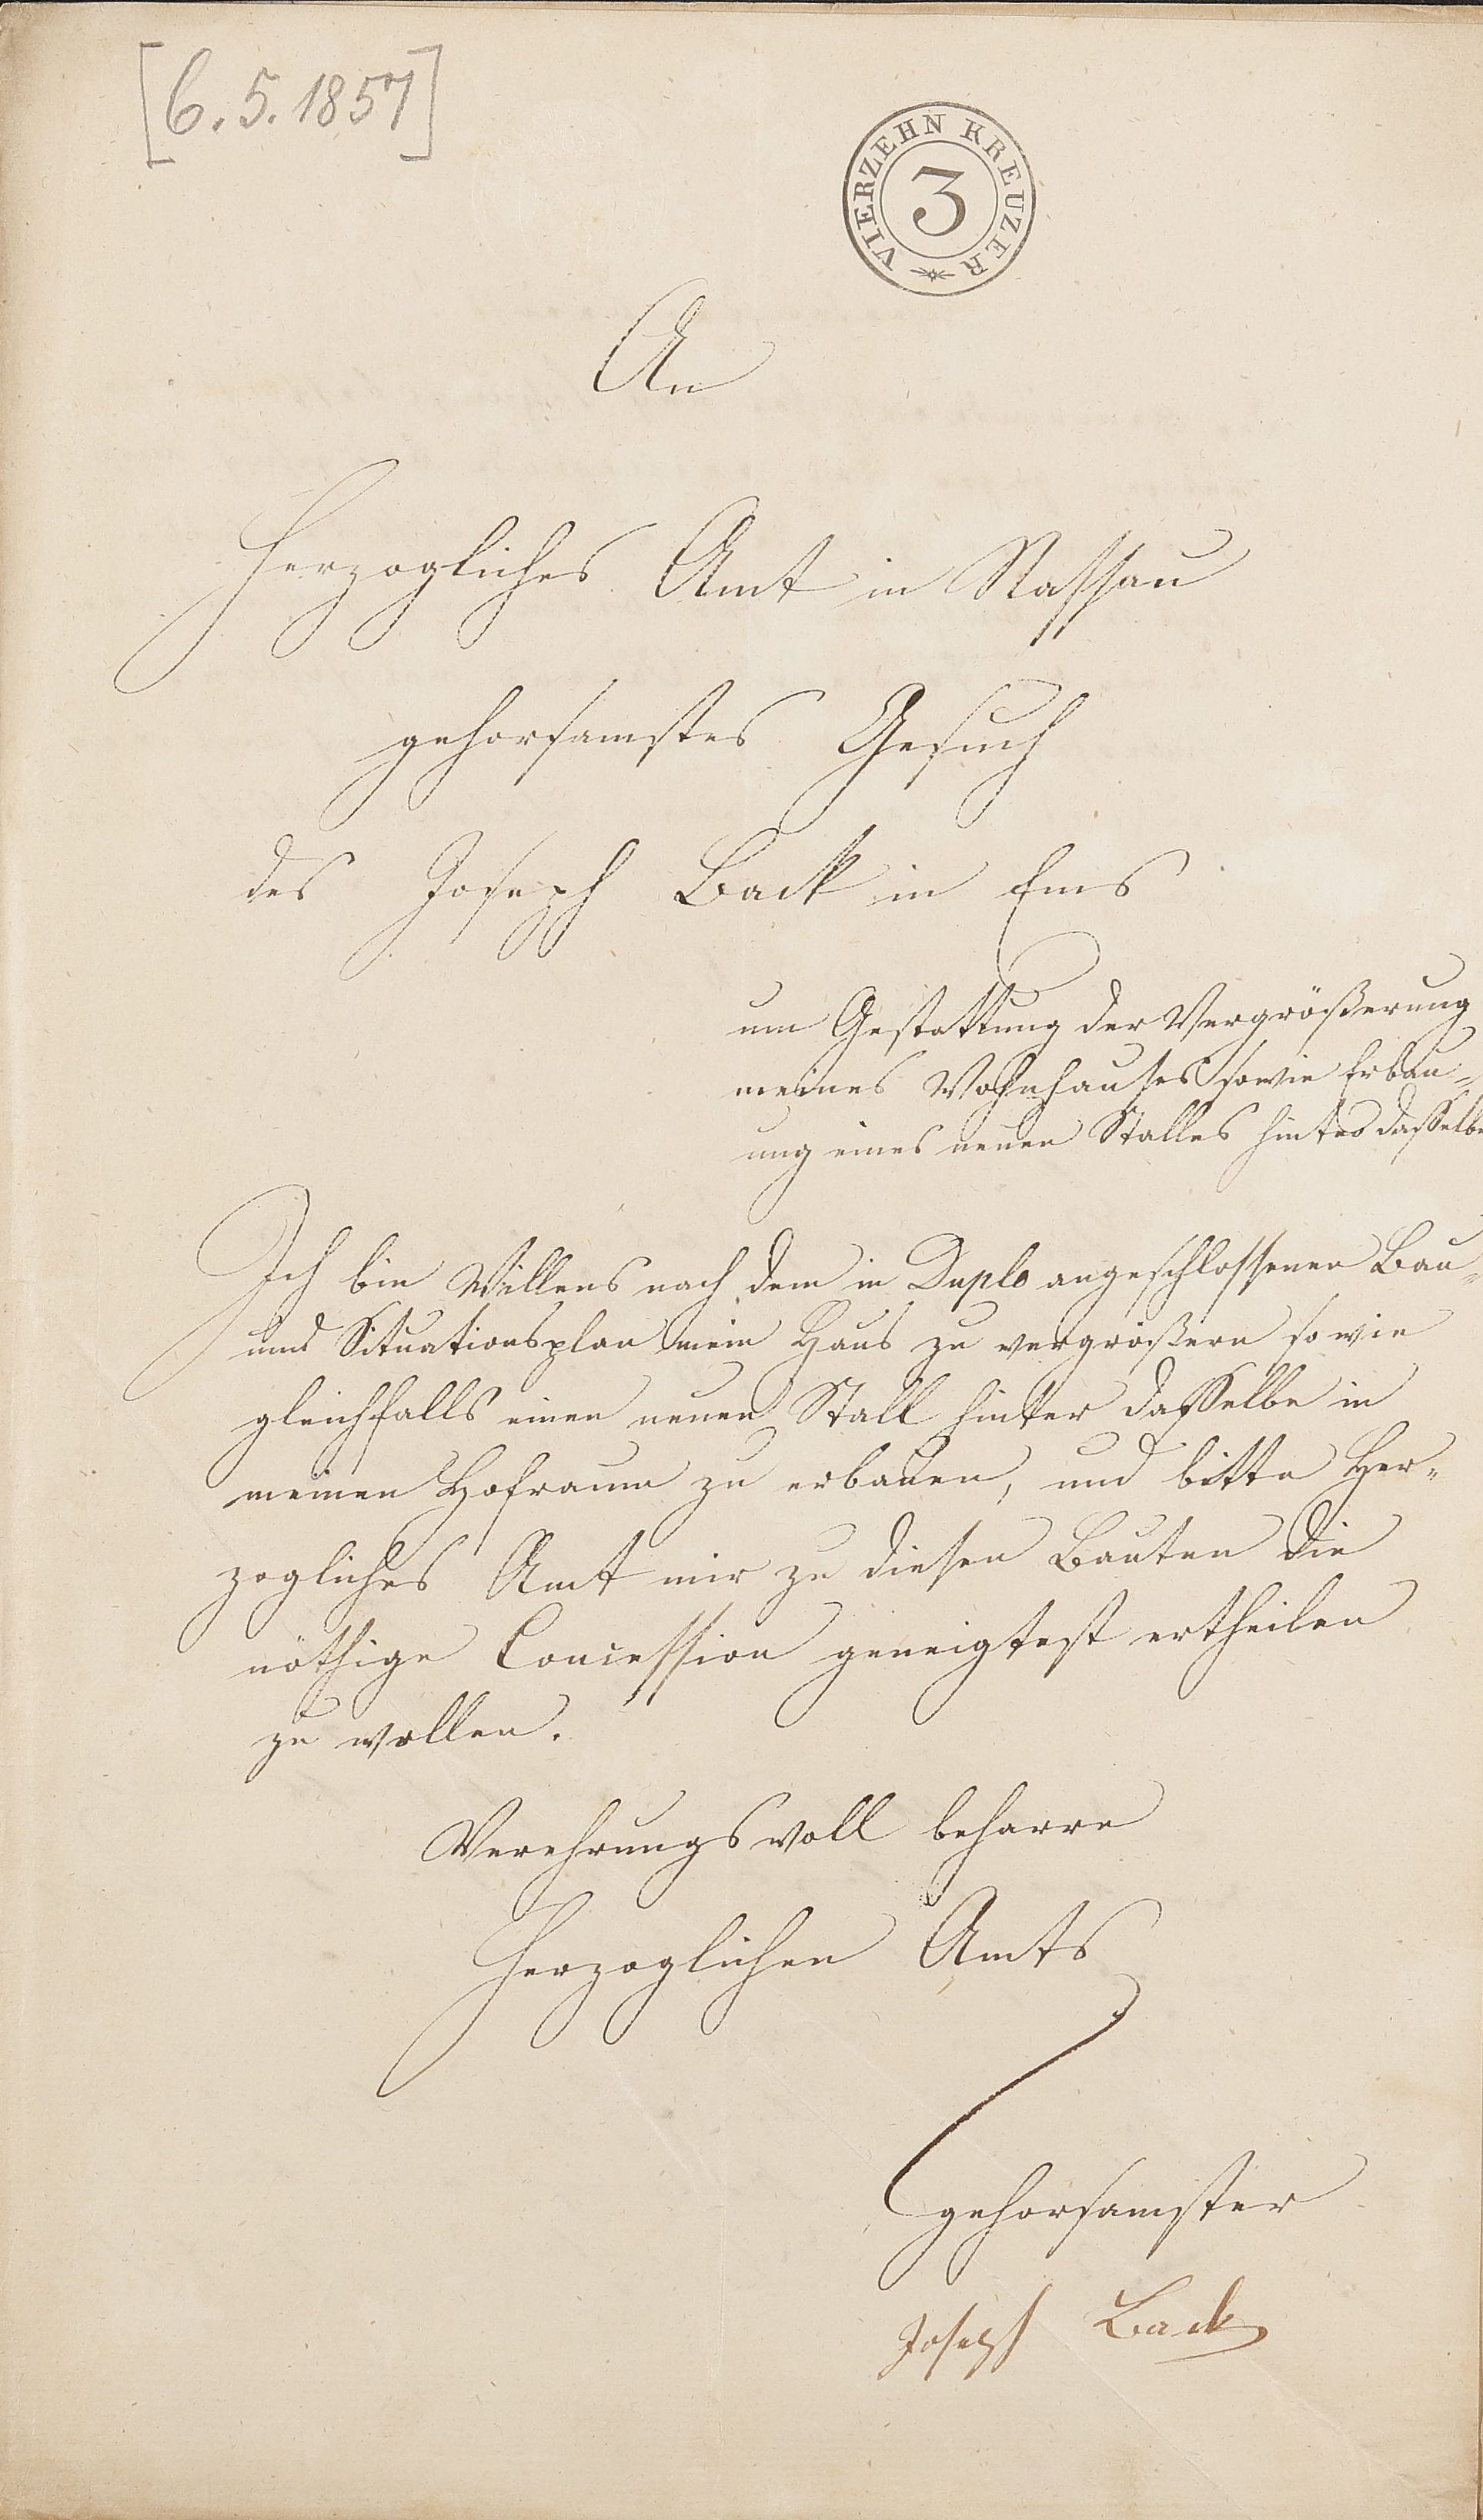 [6.5.1857]
VIERZEHN KREUZER
3
An
Herzogliches Amt in Nassau
gehorsamstes Gesuch
des Joseph Back in Ems
um Gestattung der Vergrößerung
meines Wohnhauses sowie Erbau-
ung eines neuen Stalles hinter dasselbe
Ich bin Willens nach dem in Duplo angeschlossenen Bau-
und Situationsplan mein Haus zu vergrößern sowie
gleichfalls einen neuen Stall hinter dasselbe in
meinen Hofraum zu erbauen, und bitte Her-
zogliches Amt mir zu diesen Bauten die
nöthige Concession geneigtest ertheilen
zu wollen.
Verehrungsvoll beharre
Herzoglichen Amts
gehorsamster
Joseph Back